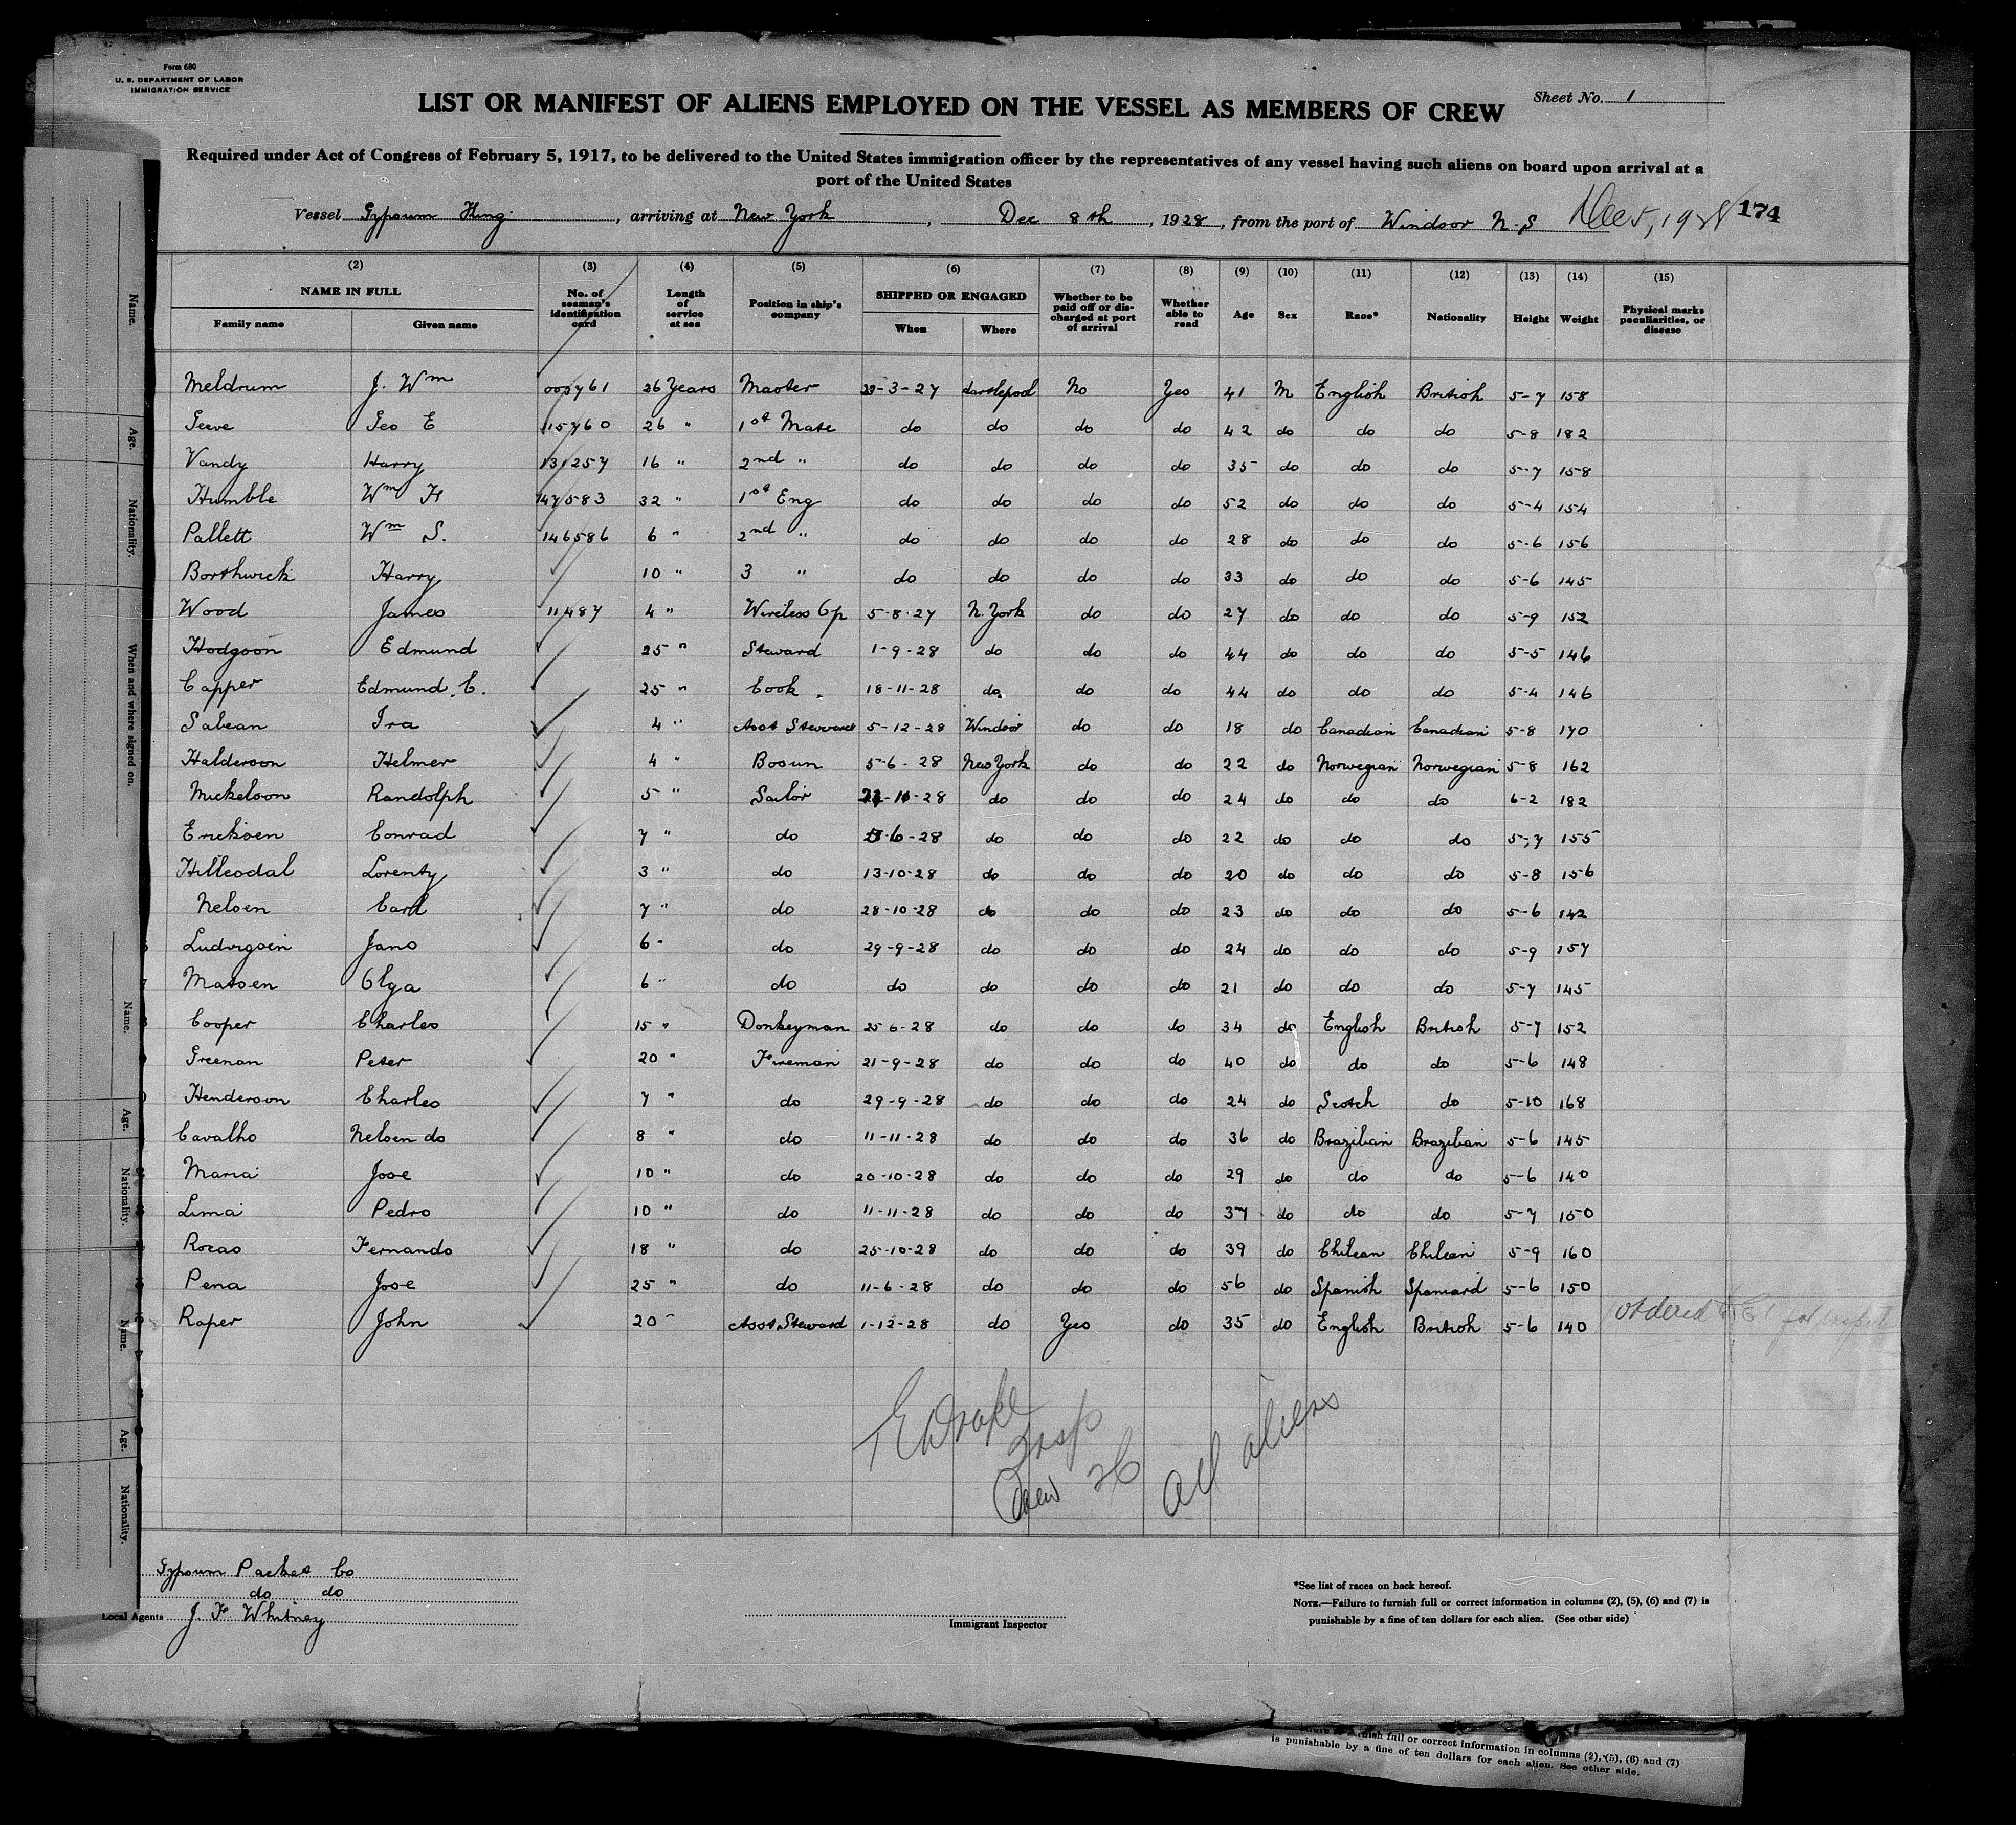 Form 680
U. S. DEPARTMENT OF LABOR
IMMIGRATION SERVICE
Sheet No. 1
LIST OR MANIFEST OF ALIENS EMPLOYED ON THE VESSEL AS MEMBERS OF CREW
Required under Act of Congress of February 5, 1917, to be delivered to the United States immigration officer by the representatives of any vessel having such aliens on board upon arrival at a
port of the United States
Vessel Gypsum King, arriving at New York, Dec 8th, 1928, from the port of Windsor N.S Dec 5, 1928 174
(2) (3) (4) (5) (6) (7) (8) (9) (10) (11) (12) (13) (14) (15)
NAME IN FULL No. of seaman's identification card Length of service at sea Position in ship's company SHIPPED OR ENGAGED Whether to be paid off or discharged at port of arrival Whether able to read Age Sex Race* Nationality Height Weight Physical marks peculiarities, or disease
Family name Given name When Where
Meldrum J. Wm 26 Years Master 3-27 Hartlepool No Yes 41 M English British 5-7 158
Geeve Geo E 15760 26 " 1st Mate do do do do 42 do do do 5-8 182
Vandy Harry 131257 16 " 2nd " do do do do 35 do do do 5-7 158
Humble Wm H 147583 32 " 1st Eng do do do do 52 do do do 5-4 154
Pallett Wm S. 146586 6 " 2nd " do do do do 28 do do do 5-6 156
Borthwick Harry 10 " 3 " do do do do 33 do do do 5-6 145
Wood James 11487 4 " Wireless Op 5-8-27 N. York do do 27 do do do 5-9 152
Hodgson Edmund 25 " Steward 1-9-28 do do do 44 do do do 5-5 146
Capper Edmund. C. 25 " Cook 18-11-28 do do do 44 do do do 5-4 146
Sabean Ira 4 " Asst Steward 5-12-28 Windsor do do 18 do Canadian Canadian 5-8 170
Halderson Helmer 4 " Bosun 5-6-28 New York do do 22 do Norwegian Norwegian 5-8 162
Mickelson Randolph 5 " Sailor do do do 24 do do do 6-2 182
Ericksen Conrad 7 " do 6-28 do do do 22 do do do 5-7 155
Hillesdal Lorenty 3 " do 13-10-28 do do do 20 do do do 5-8 156
Nelsen Carl 7 " do 28-10-28 do do do 23 do do do 5-6 142
Ludvigsein Jans 6 " do 29-9-28 do do do 24 do do do 5-9 157
Matsen Olga 6 " do do do do do 21 do do do 5-7 145
Cooper Charles 15 " Donkeyman 25-6-28 do do do 34 do English British 5-7 152
Greenan Peter 20 " Fireman 21-9-28 do do do 40 do do do 5-6 148
Henderson Charles 7 " do 29-9-28 do do do 24 do Scotch do 5-10 168
Cavalho Nelsen do 8 " do 11-11-28 do do do 36 do Brazilian Brazilian 5-6 145
Maria Jose 10 " do 20-10-28 do do do 29 do do do 5-6 140
Lima Pedro 10 " do 11-11-28 do do do 37 do do do 5-7 150
Rozas Fernando 18 " do 25-10-28 do do do 39 do Chilean Chilean 5-9 160
Pena Jose 25 " do 11-6-28 do do do 56 do Spanish Spaniard 5-6 150
Raper John 20 " Asst Steward 1-12-28 do Yes do 35 do English British 5-6 140 ordered
Drake
Insp
Crew 26 all aliens
Gypsum Packet Co
do do
Local Agents J. F Whitney
Immigrant Inspector
*See list of races on back hereof.
NOTE.—Failure to furnish full or correct information in columns (2), (5), (6) and (7) is
punishable by a fine of ten dollars for each alien. (See other side)
Name.
Age.
Nationality.
When and where signed on.
Name.
Age.
Nationality.
Name.
Age.
Nationality.
full or correct information in columns (2), (5), (6) and (7)
is punishable by a fine of ten dollars for each alien. See other side.